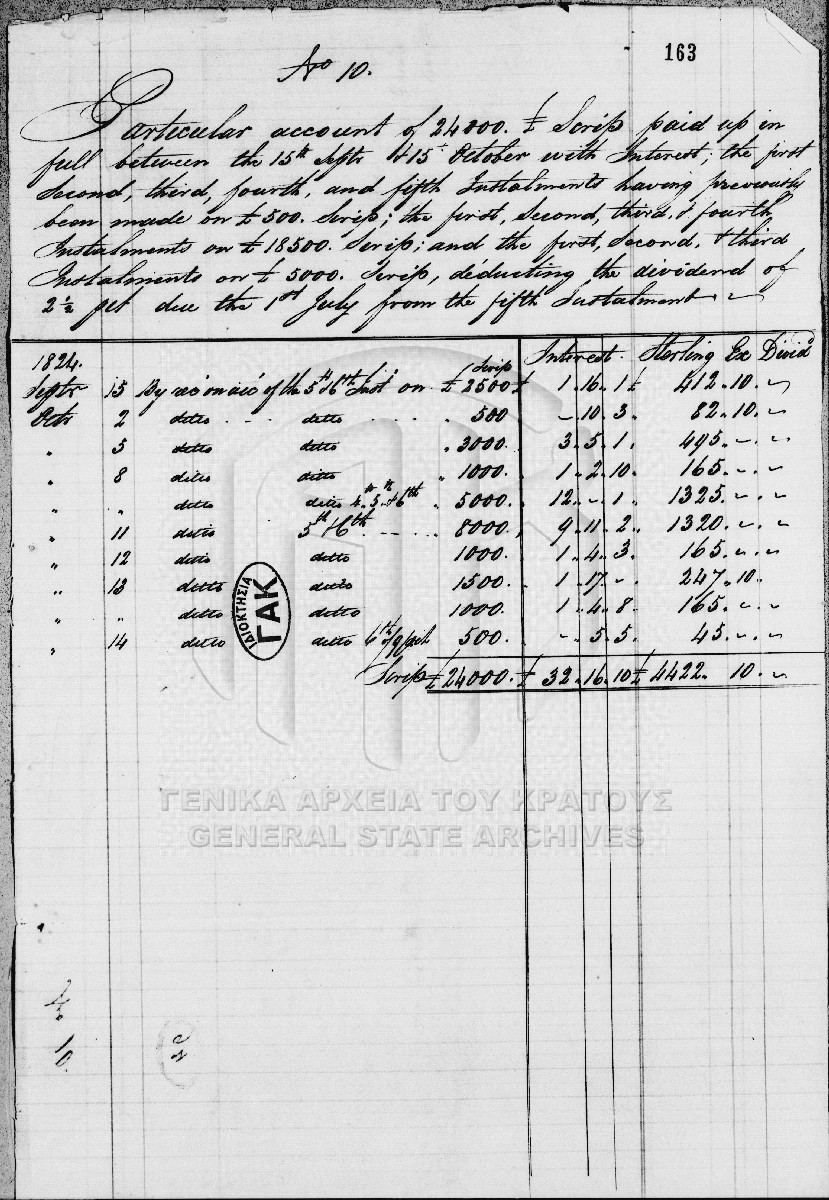 163
No 10.
Particular account of 24000. £ Scrip paid up in
full between the 15th Septr & 15th October with Interest; the first
Second, third, fourth, and fifth Instalments having previously
been made on £ 500. Scrip; the first, Second, third, & fourth,
Instalments on £ 18500. Scrip; and the first, Second, & third
Instalments on £ 5000. Scrip, deducting the dividend of
2 1/2 pCt due the 1st July from the fifth Instalment
Interest. Sterling Ex Divid
1824. Scrip
Septr 15 By of the 5th & 6th Inst on £ 2500 £ 1.16.1 £ 412.10.~
Octr 2 ditto ditto " 500 ~.10.3. 82.10.~
" 5 ditto ditto " 3000. 3.5.1. 495.~.~
" 8 ditto ditto " 1000. 1.2.10. 165.~.~
" " ditto ditto 4th 5th & 6th " 5000. 12.~.1. 1325.~.~
" 11 ditto 5th & 6th 8000. 9.11.2. 1320.~.~
" 12 ditto ditto 1000. 1.4.3. 165.~.~
" 13 ditto ditto 1500. 1.17.~. 247.10.
" " ditto ditto 1000. 1.4.8. 165.~.~
" 14 ditto ditto 6th 500. ~.5.5. 45.~.~
Scrip £ 24000. £ 32.16.10 £ 4422. 10.~
ΙΔΙΟΚΤΗΣΙΑ
ΓΑΚ
ΓΕΝΙΚΑ ΑΡΧΕΙΑ ΤΟΥ ΚΡΑΤΟΥΣ
GENERAL STATE ARCHIVES
10.